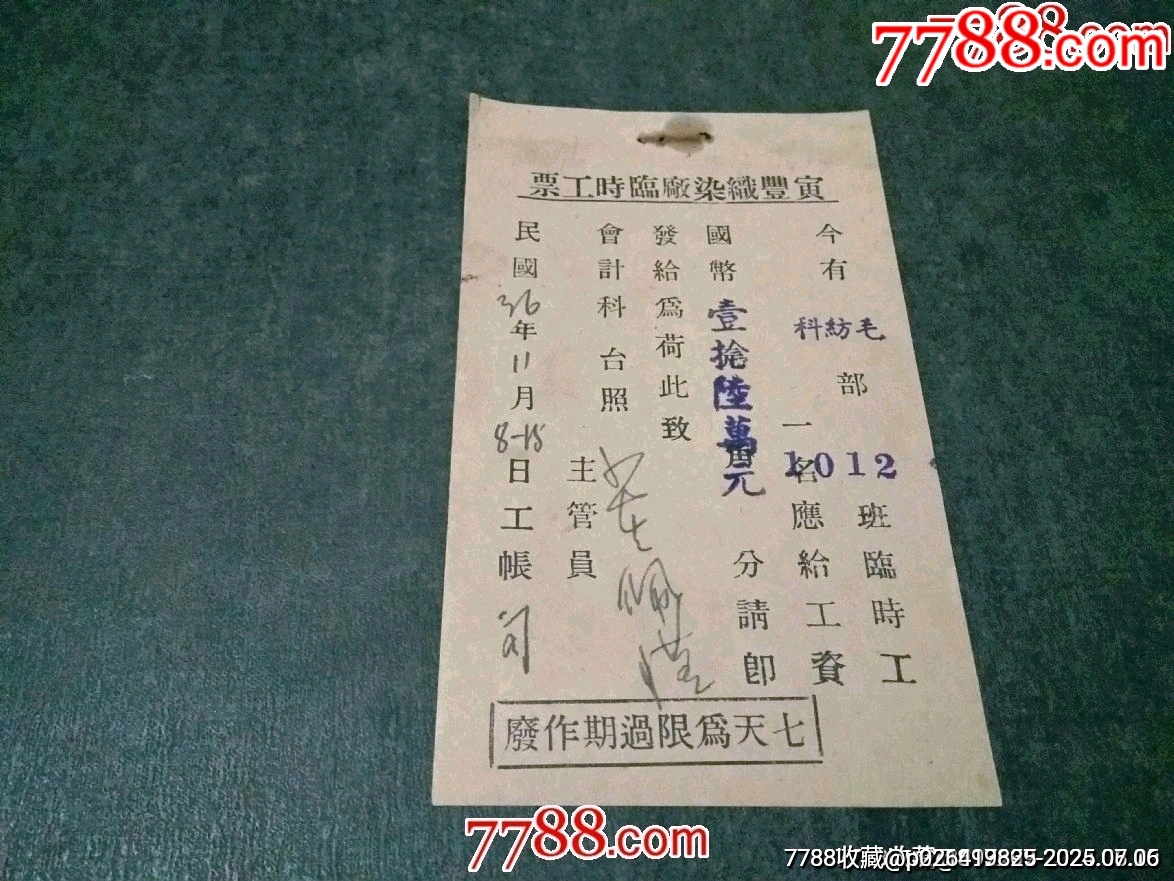 7788.com
7788.com
寅豐織染廠臨時工票
今有毛紡科部1012班臨時工
一名應給工資
國幣壹拾陸萬元分請即
發給爲荷此致
會計科台照
主管員
民國36年11月8-15日工帳
七天爲限過期作廢
7788.com
7788收藏